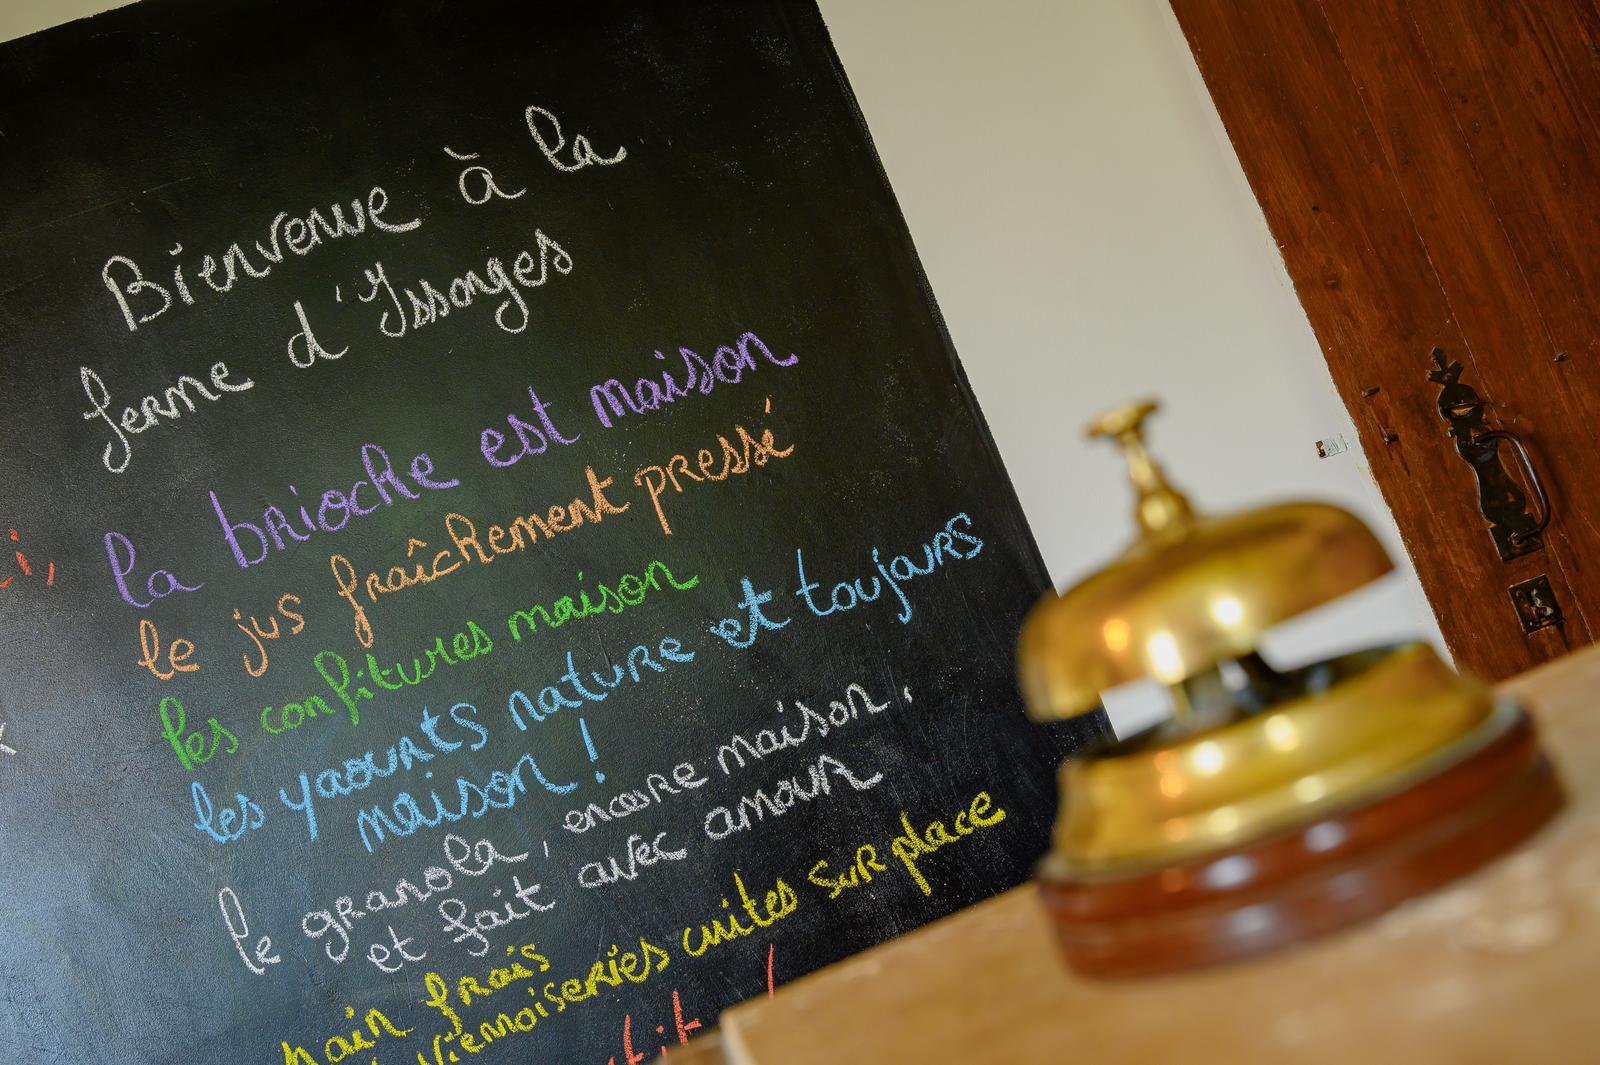 Bienvenue à la
ferme d'Issonges
la brioche est maison
le jus fraîchement pressé
les confitures maison
les yaourts nature et toujours
maison !
le granola, encore maison,
et fait avec amour
pain frais
viennoiseries cuites sur place